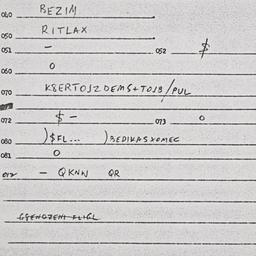 040 BEZIM
050 RITLAX
051 - 052 $
060 0
070 KSERTOJZDEMS+TOJB/PUL
072 $ - 073 0
080 )$FL... )BEDIKASXOMEC
081 0
- QKNN QR